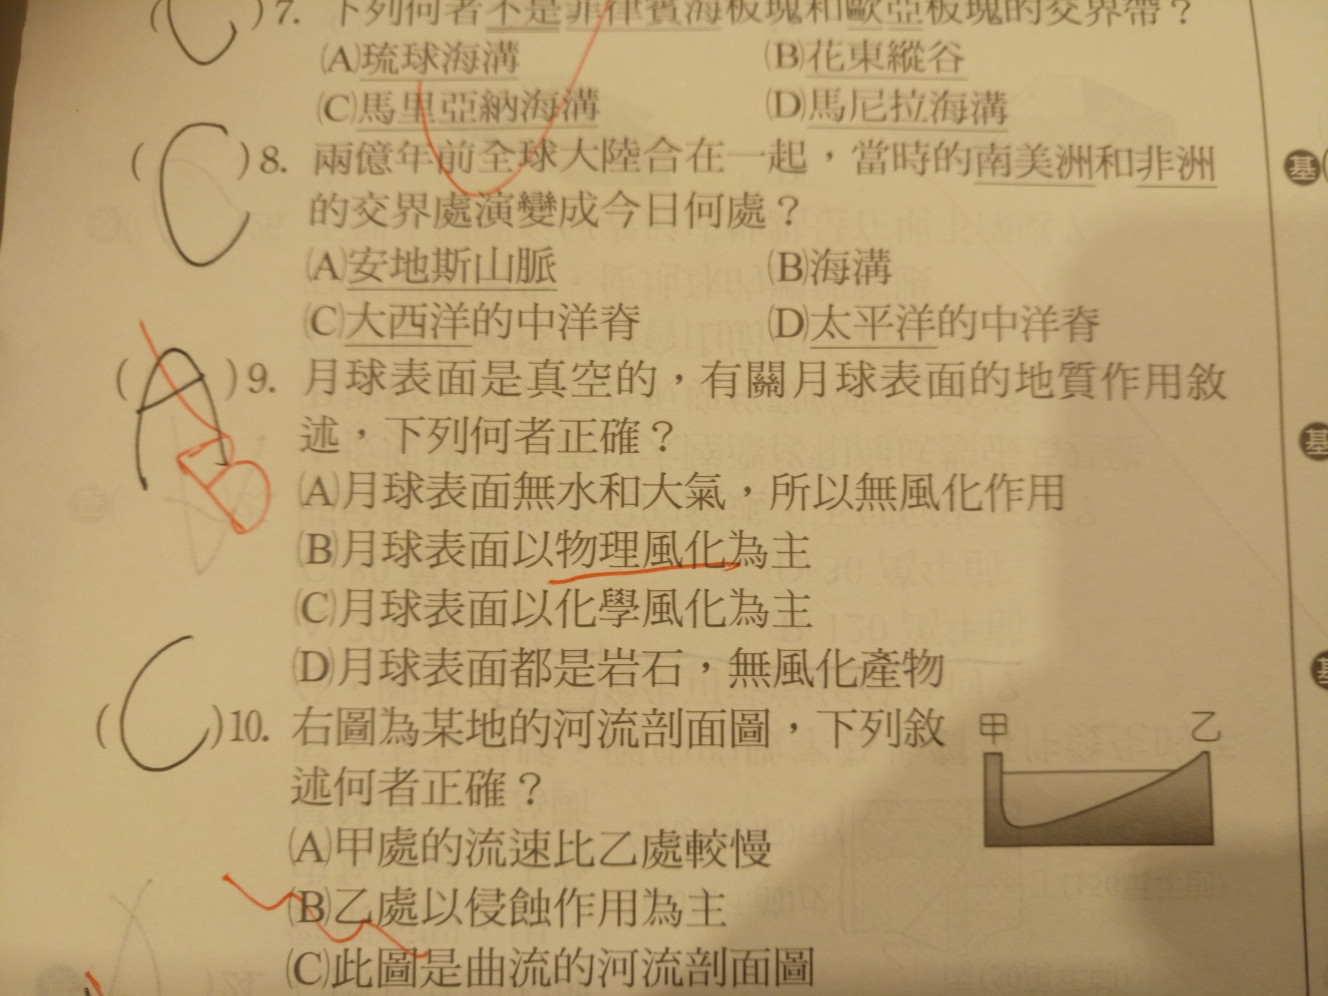 (C)7. 下列何者不是菲律賓海板塊和歐亞板塊的交界帶？
(A)琉球海溝 (B)花東縱谷
(C)馬里亞納海溝 (D)馬尼拉海溝
(C)8. 兩億年前全球大陸合在一起，當時的南美洲和非洲
的交界處演變成今日何處？
(A)安地斯山脈 (B)海溝
(C)大西洋的中洋脊 (D)太平洋的中洋脊
(A)9. 月球表面是真空的，有關月球表面的地質作用敘
B
述，下列何者正確？
(A)月球表面無水和大氣，所以無風化作用
(B)月球表面以物理風化為主
(C)月球表面以化學風化為主
(D)月球表面都是岩石，無風化產物
(C)10. 右圖為某地的河流剖面圖，下列敘
述何者正確？
甲 乙
(A)甲處的流速比乙處較慢
(B)乙處以侵蝕作用為主
(C)此圖是曲流的河流剖面圖
基
基
基